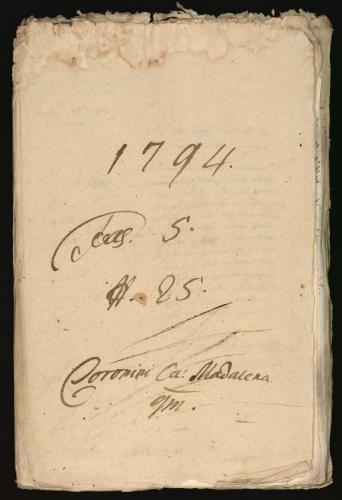 1794.
Fasc. 5.
N. 25.
Coronini Ca: Madalena
qm.